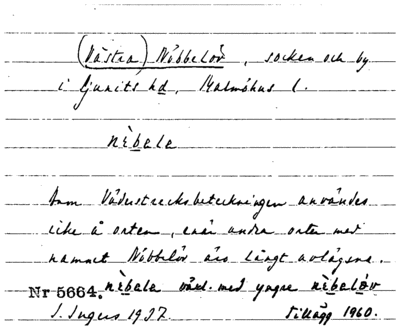 (Västra) Nöbbelöv, socken och by
i Ljunits hd, Malmöhus l.
nèbala
Som Väderstrecksbeteckningen användes
icke å orten, enär andra orter med
namnet Nöbbelöv äro långt avlägsna.
Nr 5664. nèbala växl. med yngre nèbeløv
S. Ingers 1937. Tillägg 1960.